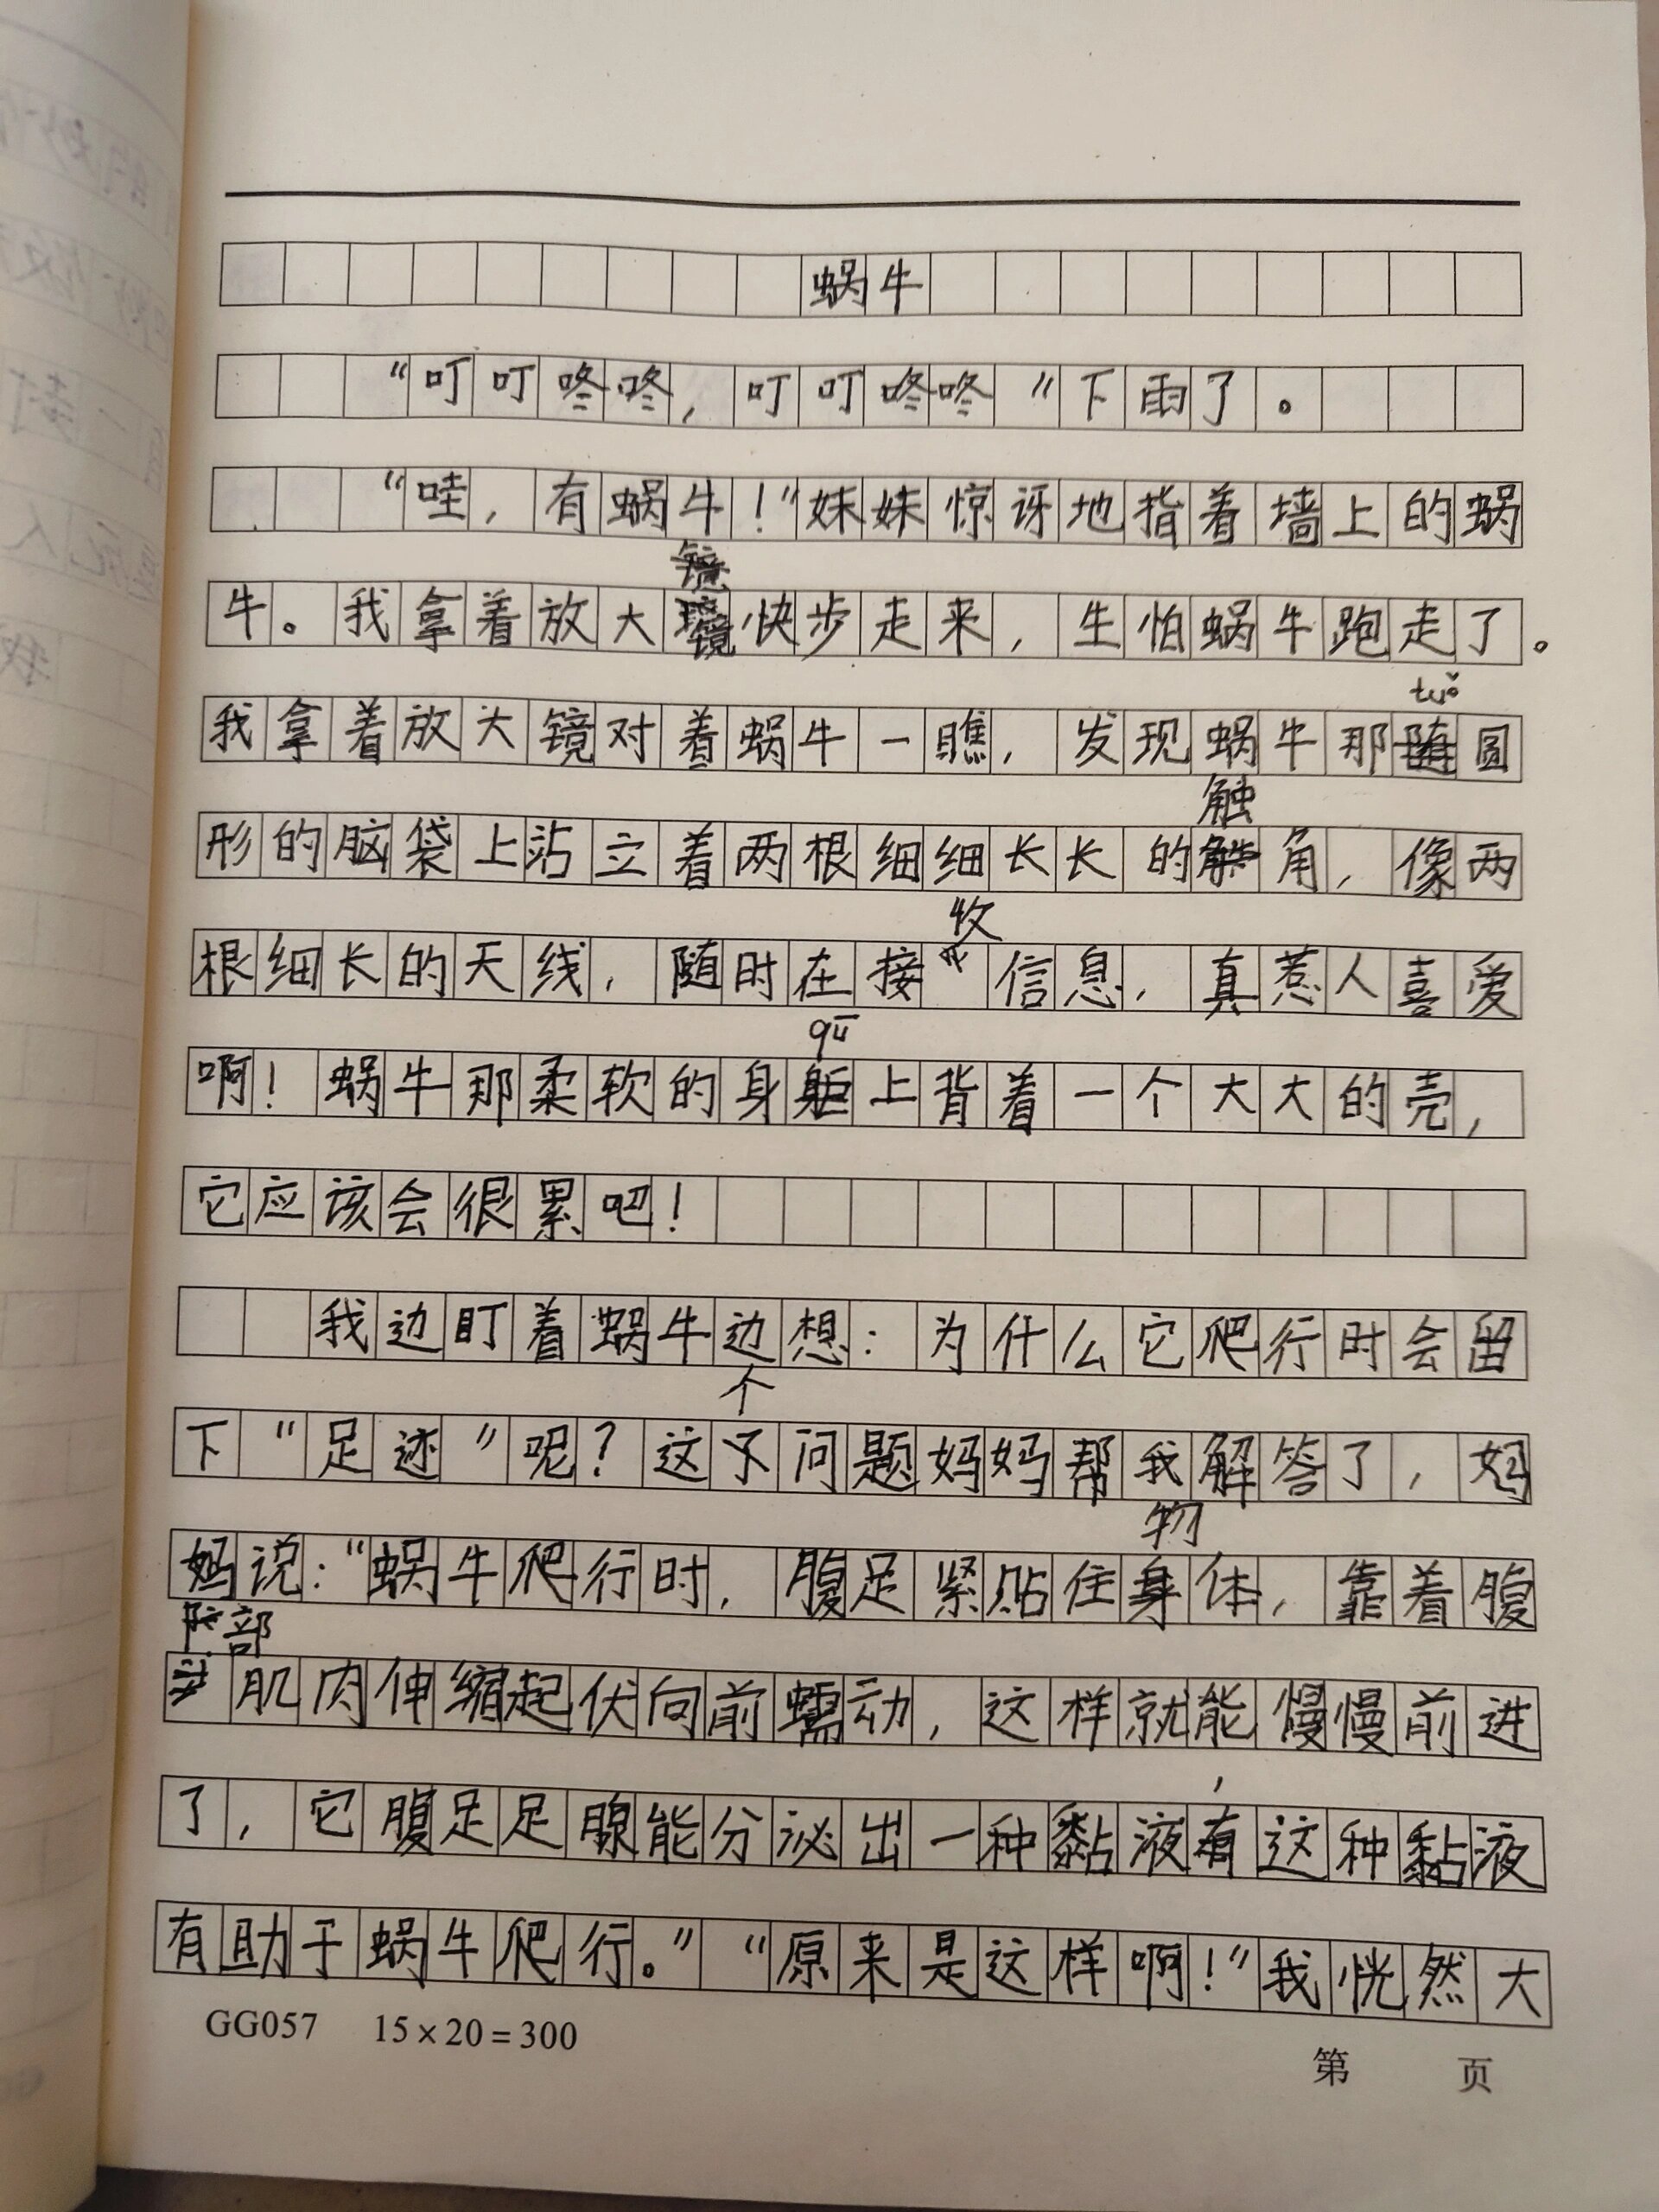 蜗牛
“叮叮咚咚，叮叮咚咚”下雨了。
“哇，有蜗牛！”妹妹惊讶地指着墙上的蜗
镜
牛。我拿着放大镜快步走来，生怕蜗牛跑走了。
tuǒ
我拿着放大镜对着蜗牛一瞧，发现蜗牛那随圆
触
形的脑袋上沾立着两根细细长长的角，像两
收
根细长的天线，随时在接信息，真惹人喜爱
qū
啊！蜗牛那柔软的身躯上背着一个大大的壳，
它应该会很累吧！
我边盯着蜗牛边想：为什么它爬行时会留
个
下“足迹”呢？这问题妈妈帮我解答了，妈
物
妈说：“蜗牛爬行时，腹足紧贴住身体，靠着腹
部
肌肉伸缩起伏向前蠕动，这样就能慢慢前进
，
了，它腹足足腺能分泌出一种黏液有这种黏液
有助于蜗牛爬行。”“原来是这样啊！”我恍然大
GG057 15×20=300
第 页